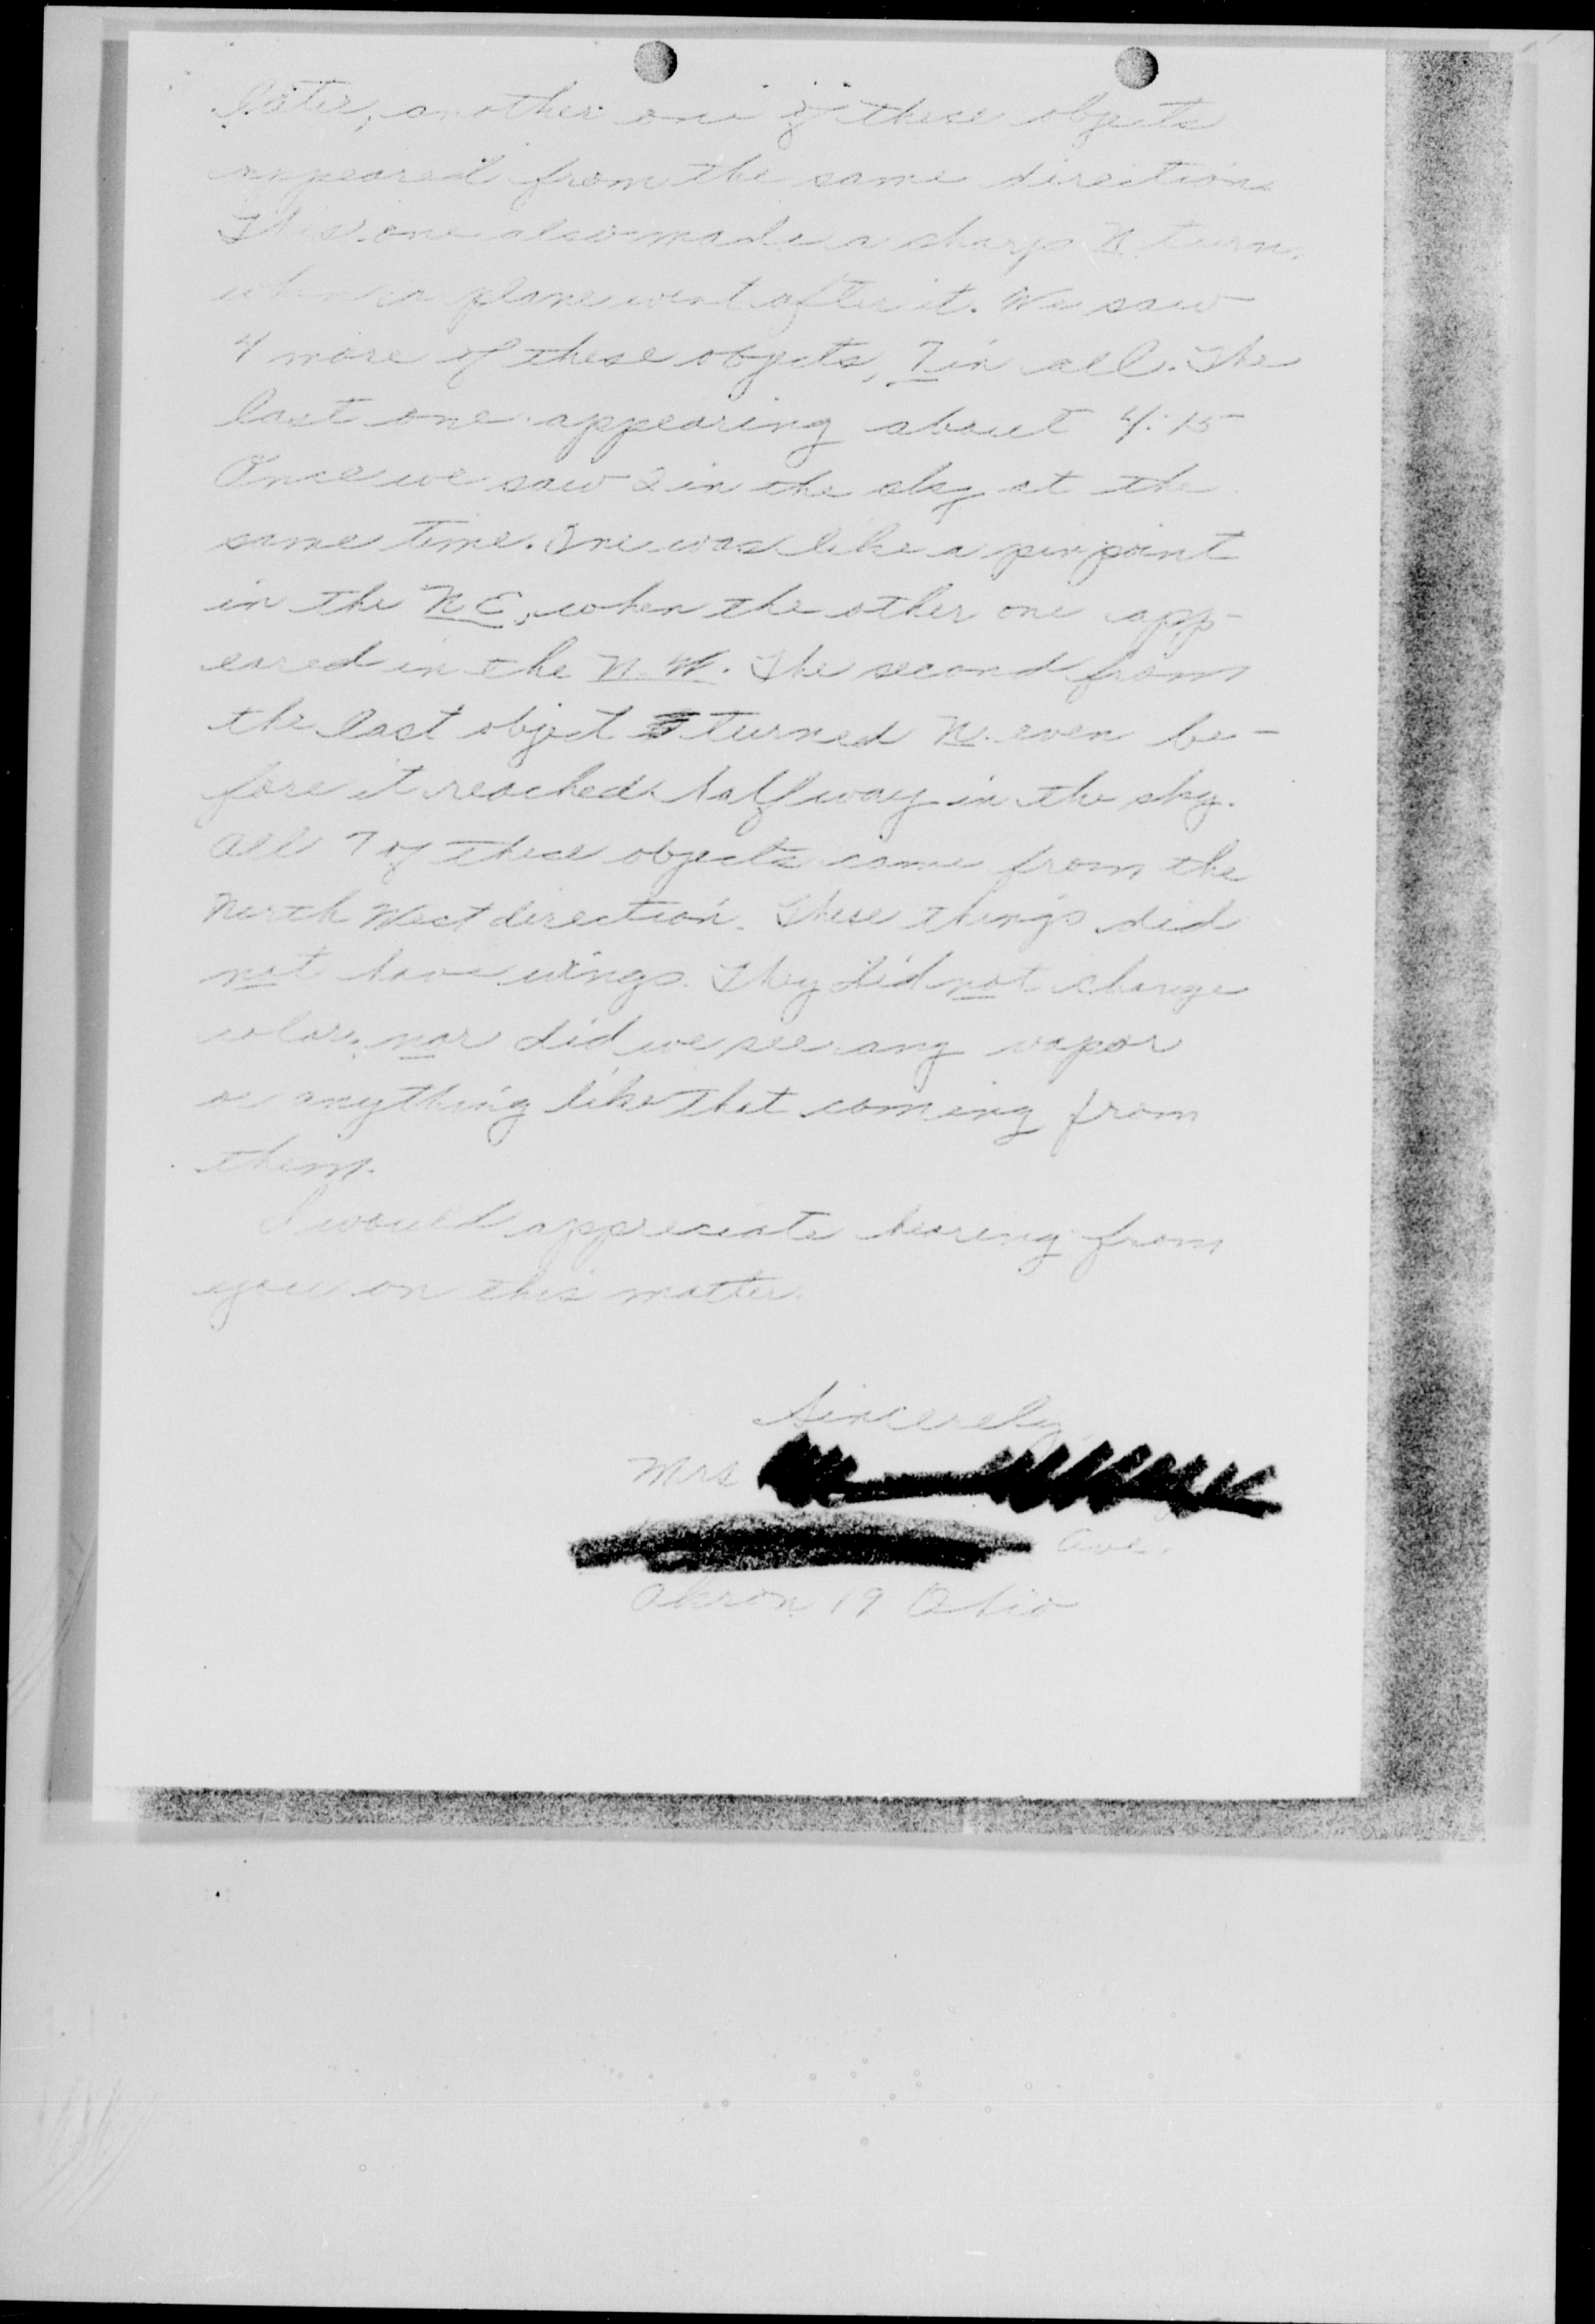 later, another one of these objects
appeared from the same direction.
This one also made a sharp N. turn,
when a plane went after it. We saw
4 more of these objects, 7 in all. The
last one appearing about 4:15
Once we saw 2 in the sky at the
same time. One was like a pin point
in the N E, when the other one app-
eared in the N. W. The second from
the last object turned N. even be-
fore it reached halfway in the sky.
All 7 of these objects came from the
North West direction. These things did
not have wings. They did not change
color, nor did we see any vapor
or anything like that coming from
them.
I would appreciate hearing from
you on this matter.
Sincerely
Mrs
Ave.
Akron 19 Ohio